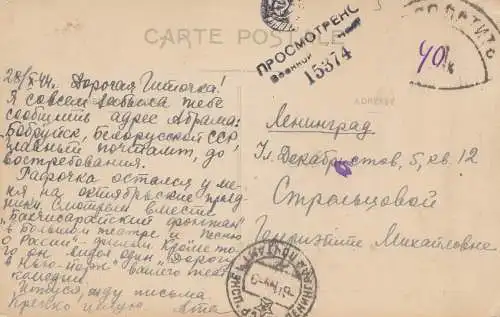 CARTE POSTALE
ПРОСМОТРЕНО
Военной
15374
ДОПЛАТИТЬ
40 к
ADRESSE
28/X-44г. Дорогая Итточка!
Я совсем забыла тебе
сообщить адрес Абрама:
Бобруйск, Белорусской ССР,
главный почтамт, до
востребования.
Рафочка остался у ме-
ня на октябрьские празд-
ники. Смотрели вместе
"Бахчисарайский фонтан"
в Большом театре и "Песню
о России" - фильм. Кроме то-
го он видел один "Дорогу
в Нью-Йорк" вашего театра
комедии.
Итуся, жду письма.
Крепко целую.
Ленинград
Ул. Декабристов, 5, кв. 12
Стрельцовой
Генриэтте Михайловне
ЛЕНИНГРАД